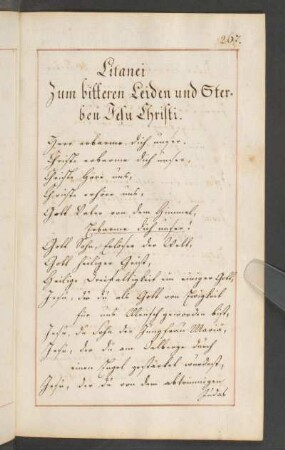 207.
Litanei
Zum bitteren Leiden und Ster-
ben Jesu Christi.
Herr erbarme dich unser.
Christe erbarme dich unser.
Christe höre uns,
Christe erhöre uns,
Gott Vater von dem Himmel,
Erbarme dich unser!
Gott Sohn Erlöser der Welt,
Gott heiliger Geist,
Heilige Dreifaltigkeit ein einiger Gott,
Jesu, der du als Gott von Ewigkeit
für uns Mensch geworden bist,
Jesu, du Sohn der Jungfrau Maria,
Jesu, der du am Oelberge durch
einen Engel gestärket wurdest,
Jesu, der du von dem abtrünnigen
Judas